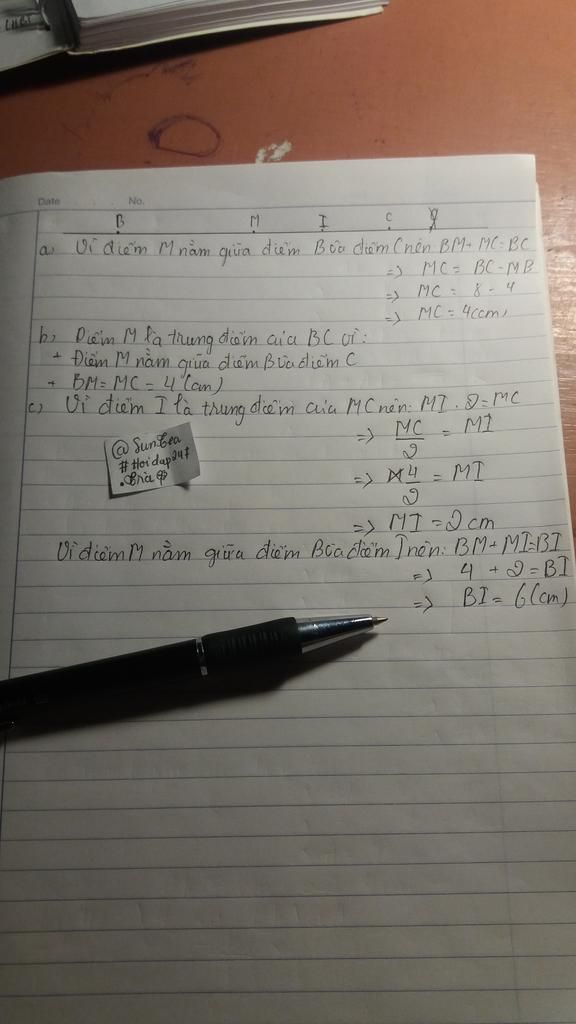 Date No.
B M I C
a, Vì điểm M nằm giữa điểm B và điểm C nên BM + MC = BC
=> MC = BC - MB
=> MC = 8 - 4
=> MC = 4(cm)
b, Điểm M là trung điểm của BC vì:
+ Điểm M nằm giữa điểm B và điểm C
+ BM = MC = 4 (cm)
c, Vì điểm I là trung điểm của MC nên: MI . 2 = MC
=> MC/2 = MI
=> 4/2 = MI
=> MI = 2 cm
@SunTea
#Hoidap247
Vì điểm M nằm giữa điểm B và điểm I nên: BM + MI = BI
=> 4 + 2 = BI
=> BI = 6 (cm)